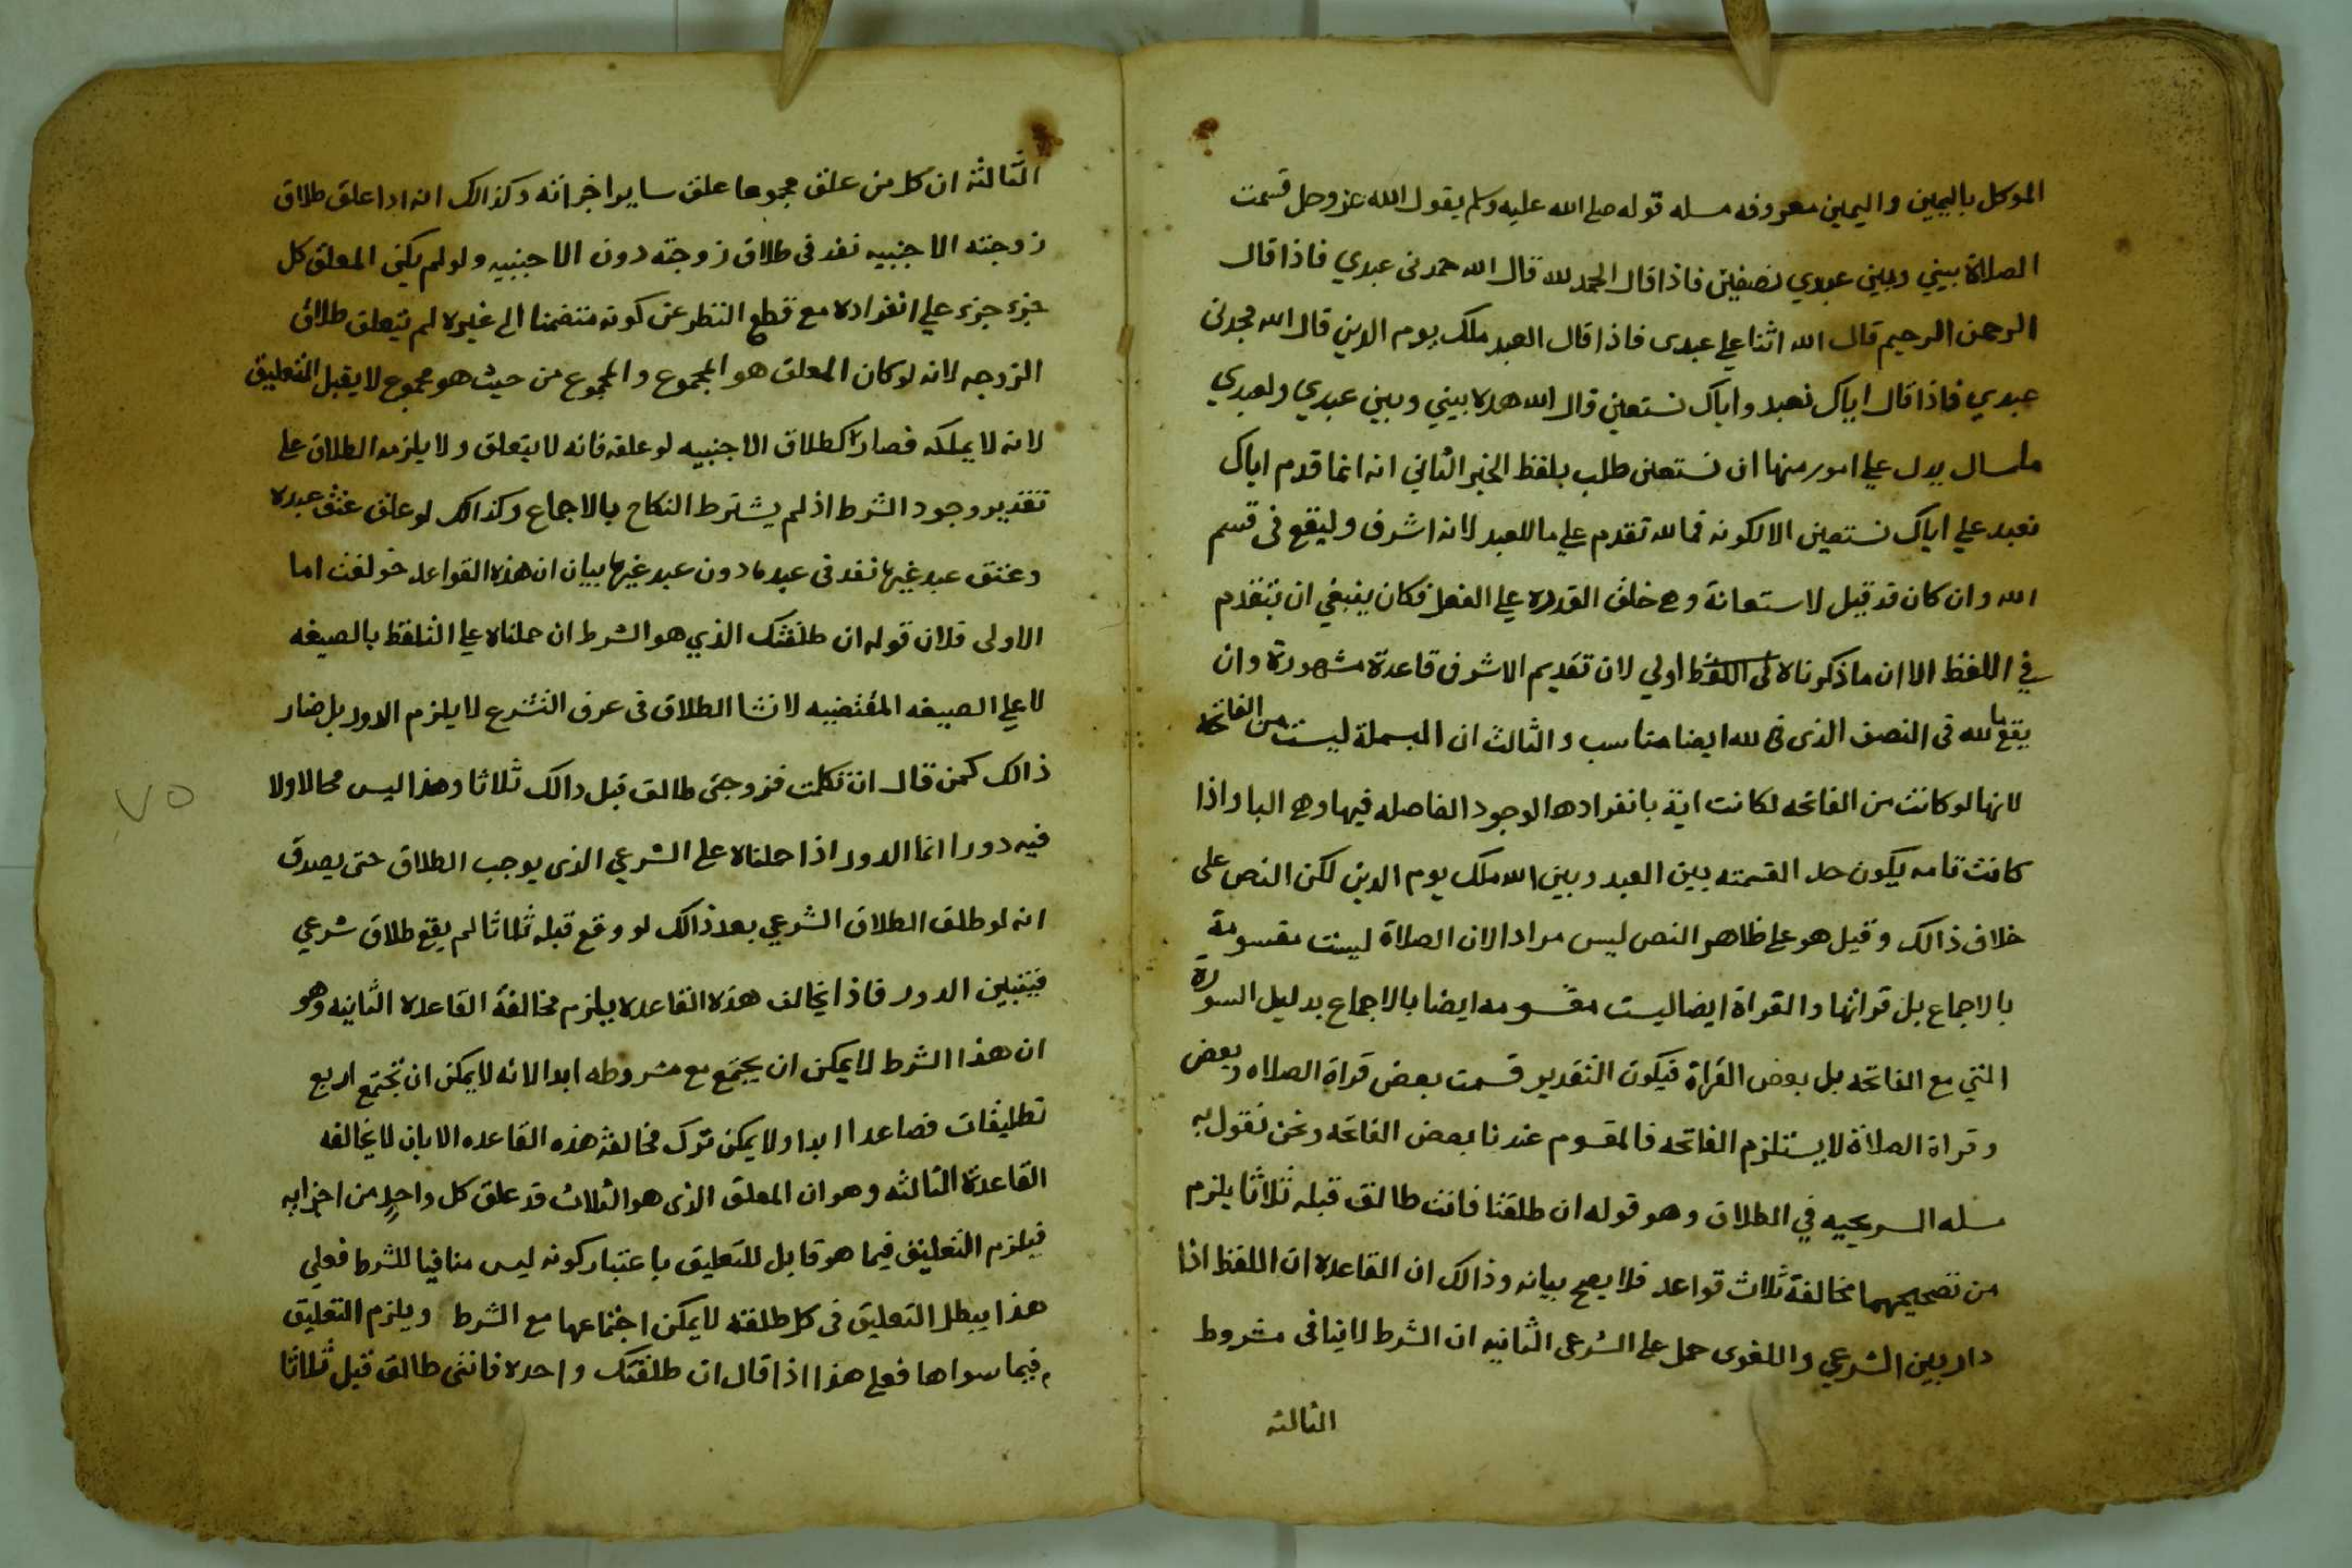 الموكل باليمين واليمين معروفه مسله قوله صلى الله عليه وسلم يقول الله عز وجل قسمت
الصلاة بيني وبين عبدي نصفين فاذا قال الحمد لله قال الله حمدني عبدي فاذا قال
الرحمن الرحيم قال الله اثنا علي عبدى فاذا قال العبد ملك يوم الدين قال الله مجدنى
عبدي فاذا قال اياك نعبد واياك نستعين قال الله هده بيني وبين عبدي ولعبدي
ماسال يدل علي امور منها ان نستعين طلب بلفظ الخبر الثاني انه انما قدم اياك
نعبد علي اياك نستعين الا لكونه فمالله تقدم علي ماللعبد لانه اشرف وليقع فى قسم
الله وان كان قد قيل لاستعانة وهي خلق القدره علي الفعل فكان ينبغي ان تتقدم
في اللفظ الا ان ما ذكرناه اولي لان تقديم الاشرف قاعدة مشهورة وان
يقع ما لله فى النصف الذى هو لله ايضا مناسب والثالث ان البسملة ليست من الفاتحة
لانها لو كانت من الفاتحه لكانت اية بانفرادها لوجود الفاصله فيها وهي اليا واذا
كانت تامه يكون حد القسمته بين العبد وبين الله ملك يوم الدين لكن النص على
خلاف ذالك وقيل هو على ظاهر النص ليس مرادا لان الصلاة ليست مقسومة
بالاجماع بل قراتها والقراة ايضا ليست مقسومه ايضا بالاجماع بدليل السورة
التي مع الفاتحه بل بعض القراة فيكون التقدير قسمت بعض قراة الصلاه وبعض
وقراة الصلاة لا يستلزم الفاتحه فالمقسوم عندنا بعض الفاتحه ونحن نقول به
مسله السريجيه في الطلاق وهو قوله ان طلقتا فانت طالق قبله ثلاثا يلزم
من تصحيحهما مخالفة ثلاث قواعد فلا يصح بيانه وذالك ان القاعده ان اللفظ اذا
دار بين الشرعي واللغوى حمل على الشرعى الثانيه ان الشرط لاينافى مشروط
الثالثه
الثالثه ان كل من علق مجموعا علق ساير اجزائه وكذالك انه اذا علق طلاق
زوجته الاجنبيه نفد فى طلاق زوجته دون الاجنبيه ولو لم يكن المعلق كل
جزء جزء علي انفراده مع قطع النظر عن كونه منضما الى غيره لم يتعلق طلاق
الزوجه لانه لو كان المعلق هو المجموع والمجموع من حيث هو مجموع لا يقبل التعليق
لانه لا يملكه فصار كطلاق الاجنبيه لو علقه فانه لايتعلق ولا يلزمه الطلاق على
تقدير وجود الشرط اذ لم يشترط النكاح بالاجماع وكذالك لو علق عتق عبده
وعتق عبد غيرها نفد فى عبدها دون عبد غيرها بيان ان هذه القواعد خولفت اما
الاولى فلان قوله ان طلقتك الذي هو الشرط ان حملناه علي التلفظ بالصيغه
لا علي الصيغه المقتضيه لانشا الطلاق فى عرف الشرع لا يلزم الدور بل صار
ذالك كمن قال ان تكلمت فزوجتى طالق قبل دالك ثلاثا وهذا ليس محالا ولا
فيه دور انما الدور اذا حملناه على الشرعي الذى يوجب الطلاق حتى يصدق
انه لو طلق الطلاق الشرعي بعد ذالك لو وقع قبله ثلاثا لم يقع طلاق شرعي
فيتبين الدور فاذا يخالف هذه القاعده يلزم مخالفة القاعده الثانيه وهو
ان هذا الشرط لايمكن ان يجتمع مع مشروطه ابدا لانه لايمكن ان تجتمع اربع
تطليقات فصاعدا ابدا ولا يمكن ترك مخالفة هذه القاعده الا بان لا يخالفه
القاعدة الثالثه وهو ان المعلق الذى هو الثلاث قد علق كل واحد من اجزابه
فيلزم التعليق فيما هو قابل للتعليق باعتبار كونه ليس منافيا للشرط فعلي
هذا يبطل التعليق فى كل طلقه لايمكن اجتماعها مع الشرط ويلزم التعليق
فيما سواها فعلي هذا اذا قال ان طلقتك واحده فانتى طالق قبل ثلاثا
٧٥